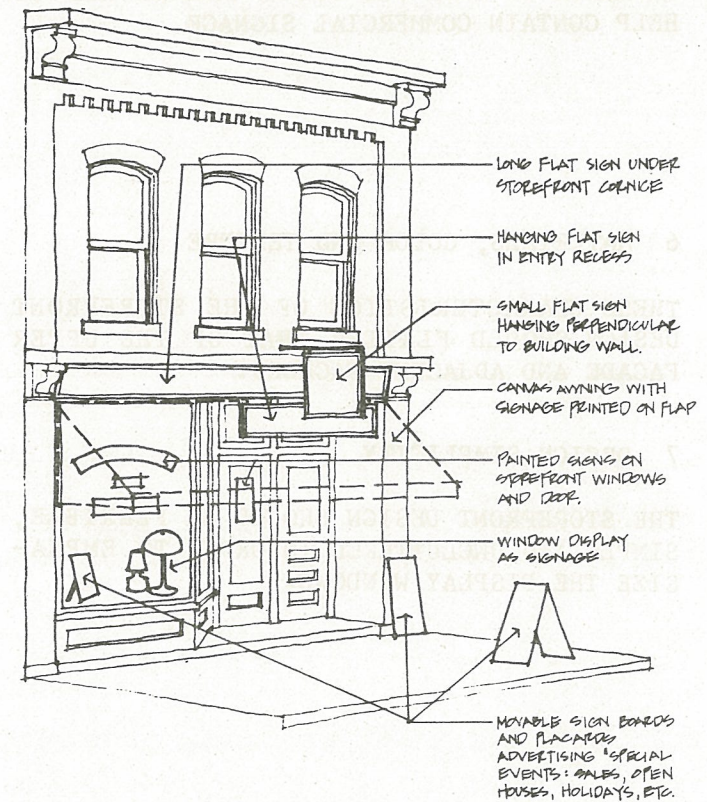 LONG FLAT SIGN UNDER
STOREFRONT CORNICE
HANGING FLAT SIGN
IN ENTRY RECESS
SMALL FLAT SIGN
HANGING PERPENDICULAR
TO BUILDING WALL.
CANVAS AWNING WITH
SIGNAGE PRINTED ON FLAP
PAINTED SIGNS ON
STOREFRONT WINDOWS
AND DOOR.
WINDOW DISPLAY
AS SIGNAGE
MOVABLE SIGN BOARDS
AND PLACARDS
ADVERTISING "SPECIAL
EVENTS: SALES, OPEN
HOUSES, HOLIDAYS, ETC.